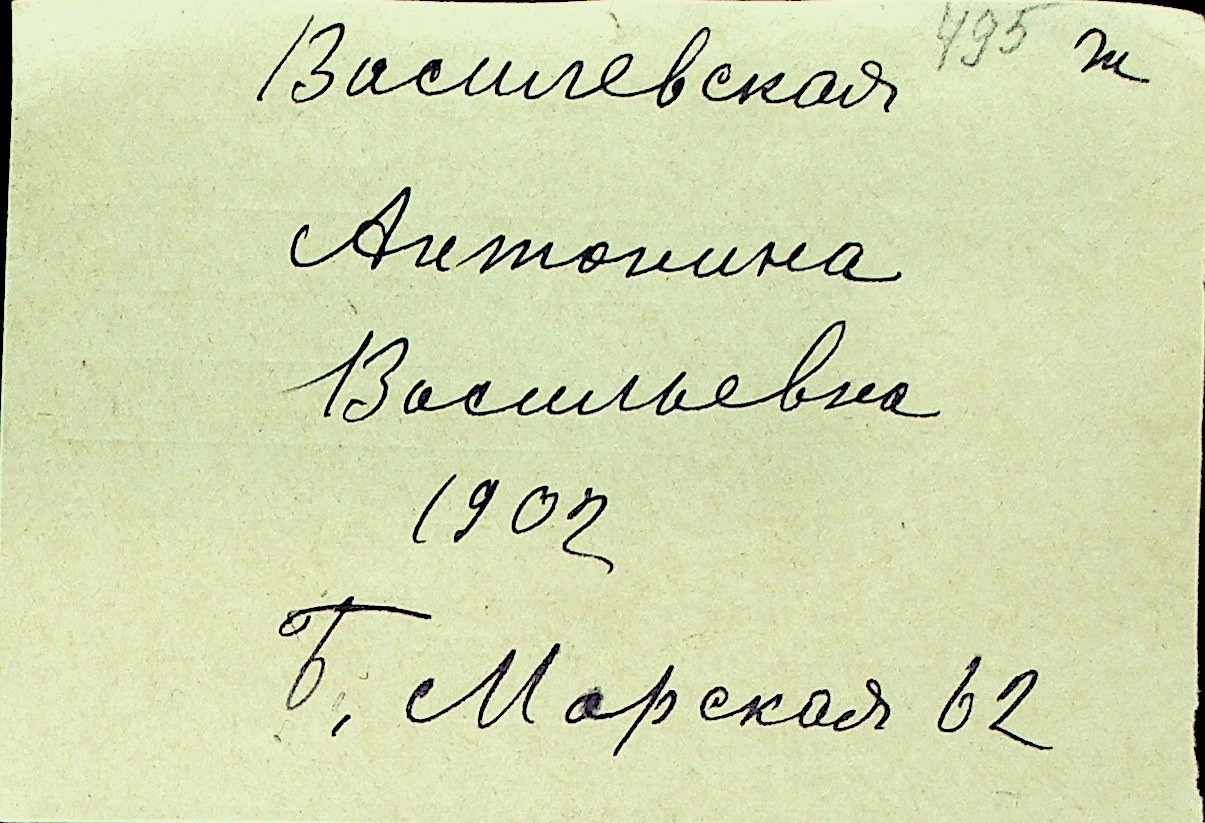 Василевская 495 ж
Антонина
Васильевна
1902
Б. Морская 62